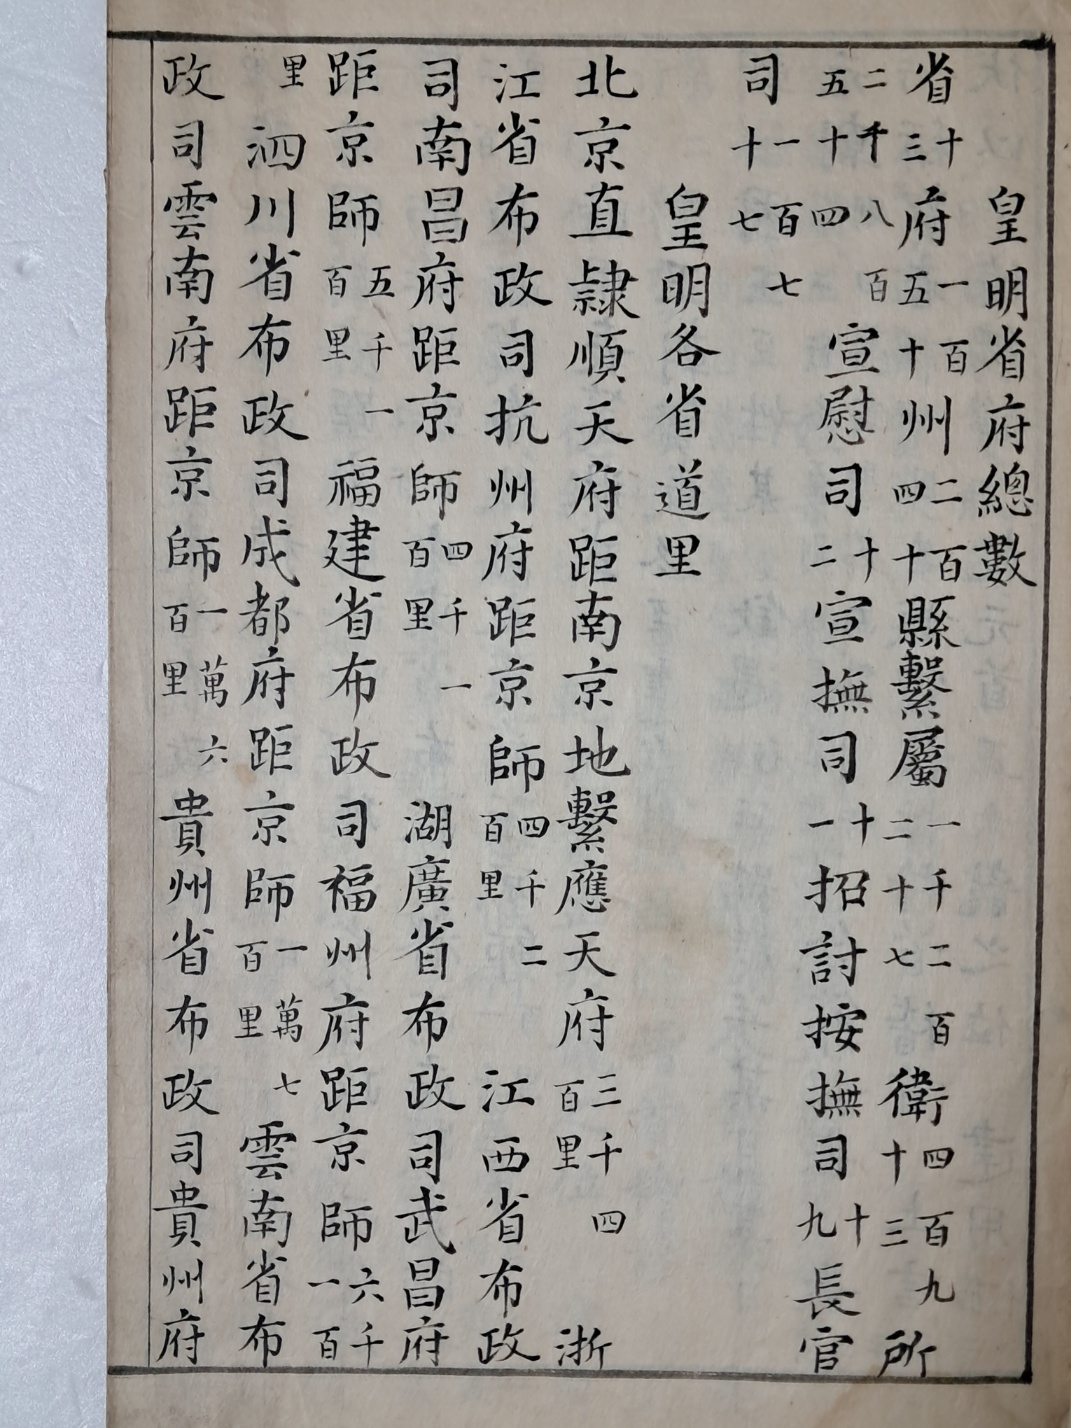 皇明省府總數
省十三府一百五十州二百四十縣繫屬一千二百二十七衛四百九十三所
二千八百五十四宣慰司十二宣撫司十一招討按撫司十九長官
司一百七十七
皇明各省道里
北京直隸順天府距南京地繫應天府三千四百里浙
江省布政司抗州府距京師四千二百里江西省布政
司南昌府距京師四千一百里湖廣省布政司武昌府
距京師五千一百里福建省布政司福州府距京師六千一百
里泗川省布政司成都府距京師一萬七百里雲南省布
政司雲南府距京師一萬六百里貴州省布政司貴州府